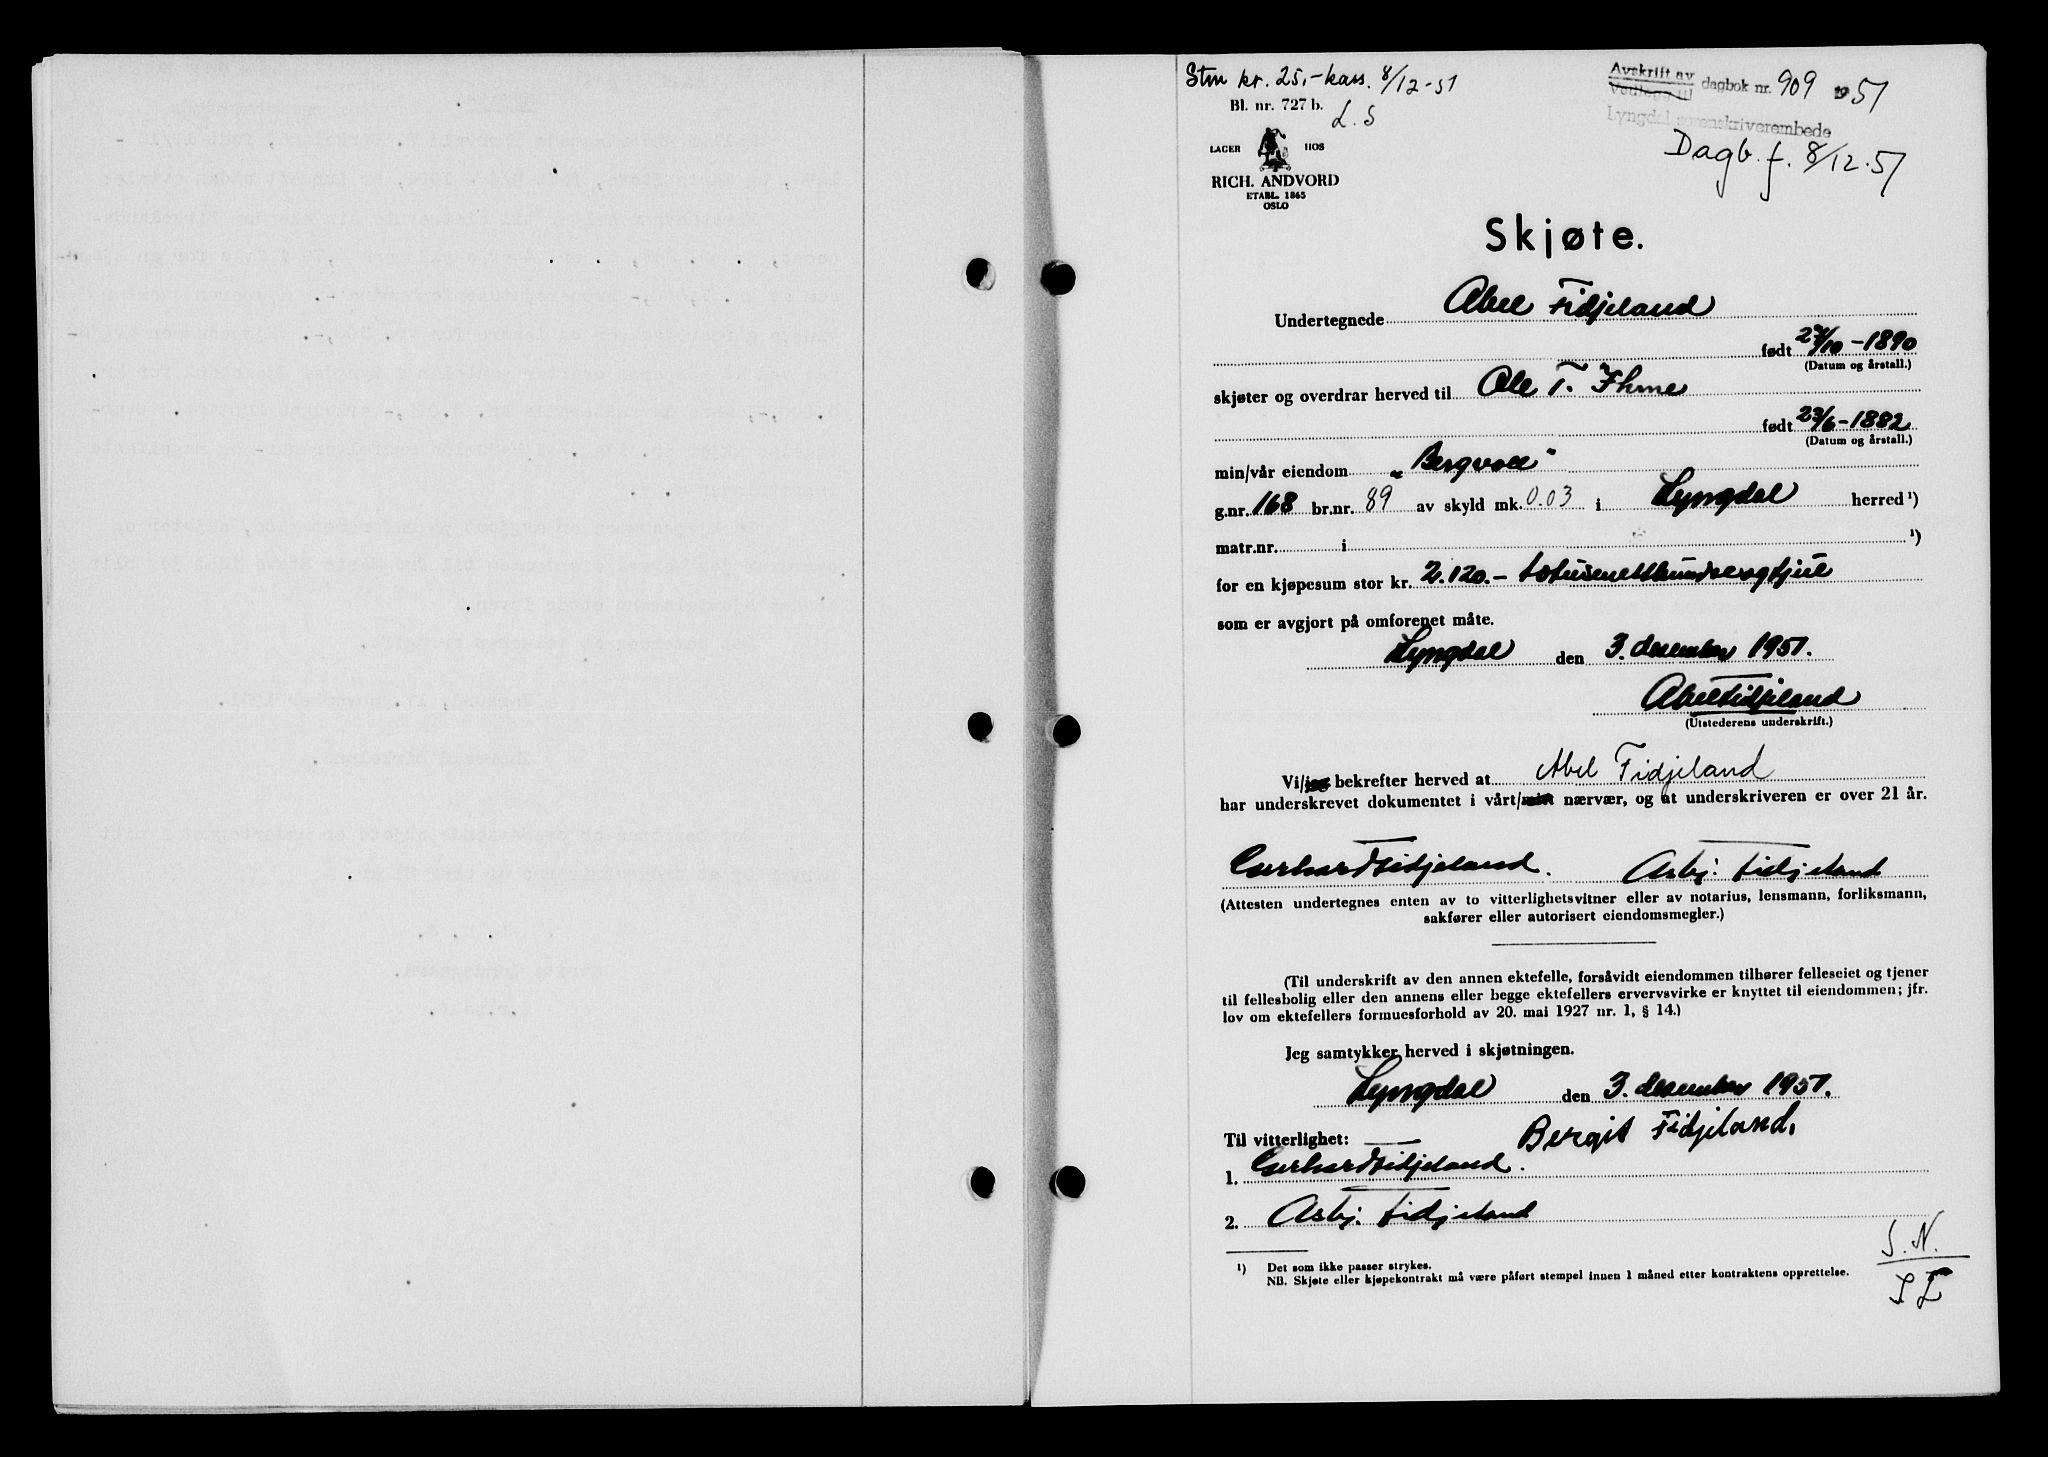 Stm kr. 25,- kass. 8/12-51
L. S
Avskrift av
Vedlegg til
dagbok nr. 909 1951
Lyngdal sorenskriverembede
Dagb. f. 8/12-51
Bl. nr. 727 b.
LAGER HOS
RICH. ANDVORD
ETABL. 1865
OSLO
Skjøte.
Undertegnede Abel Fidjeland
født 27/10-1890
(Datum og årstall.)
skjøter og overdrar herved til Ole T. Ihme
født 23/6-1882
(Datum og årstall.)
min/vår eiendom „Bergvoll"
g.nr. 168 br.nr. 89 av skyld mk. 0.03 i Lyngdal herred ¹)
matr.nr. i ¹)
for en kjøpesum stor kr. 2.120.- totusenetthundreogtjue
som er avgjort på omforenet måte.
Lyngdal den 3. desember 1951.
Abel Fidjeland
(Utstederens underskrift.)
Vi/jeg bekrefter herved at Abel Fidjeland
har underskrevet dokumentet i vårt/mitt nærvær, og at underskriveren er over 21 år.
Gerhard Fidjeland. Asbj. Fidjeland
(Attesten undertegnes enten av to vitterlighetsvitner eller av notarius, lensmann, forliksmann,
sakfører eller autorisert eiendomsmegler.)
(Til underskrift av den annen ektefelle, forsåvidt eiendommen tilhører felleseiet og tjener
til fellesbolig eller den annens eller begge ektefellers ervervsvirke er knyttet til eiendommen; jfr.
lov om ektefellers formuesforhold av 20. mai 1927 nr. 1, § 14.)
Jeg samtykker herved i skjøtningen.
Lyngdal den 3. desember 1951.
Bergit Fidjeland.
Til vitterlighet:
1. Gerhard Fidjeland.
2. Asbj. Fidjeland
¹) Det som ikke passer strykes.
NB. Skjøte eller kjøpekontrakt må være påført stempel innen 1 måned etter kontraktens opprettelse.
S. N.